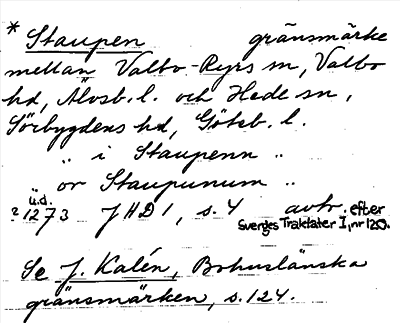 * Staupen gränsmärke
mellan Valbo-Ryrs sn, Valbo
hd, Älvsb. l. och Hede sn,
Sörbygdens hd, Göteb. l.
„ i Staupenn „
or Staupunum „
u.d.
? 1273 JHD 1, s. 4 avtr. efter
Sverges Traktater I, nr 120.
Se J. Kalén, Bohuslänska
gränsmärken, s. 124.